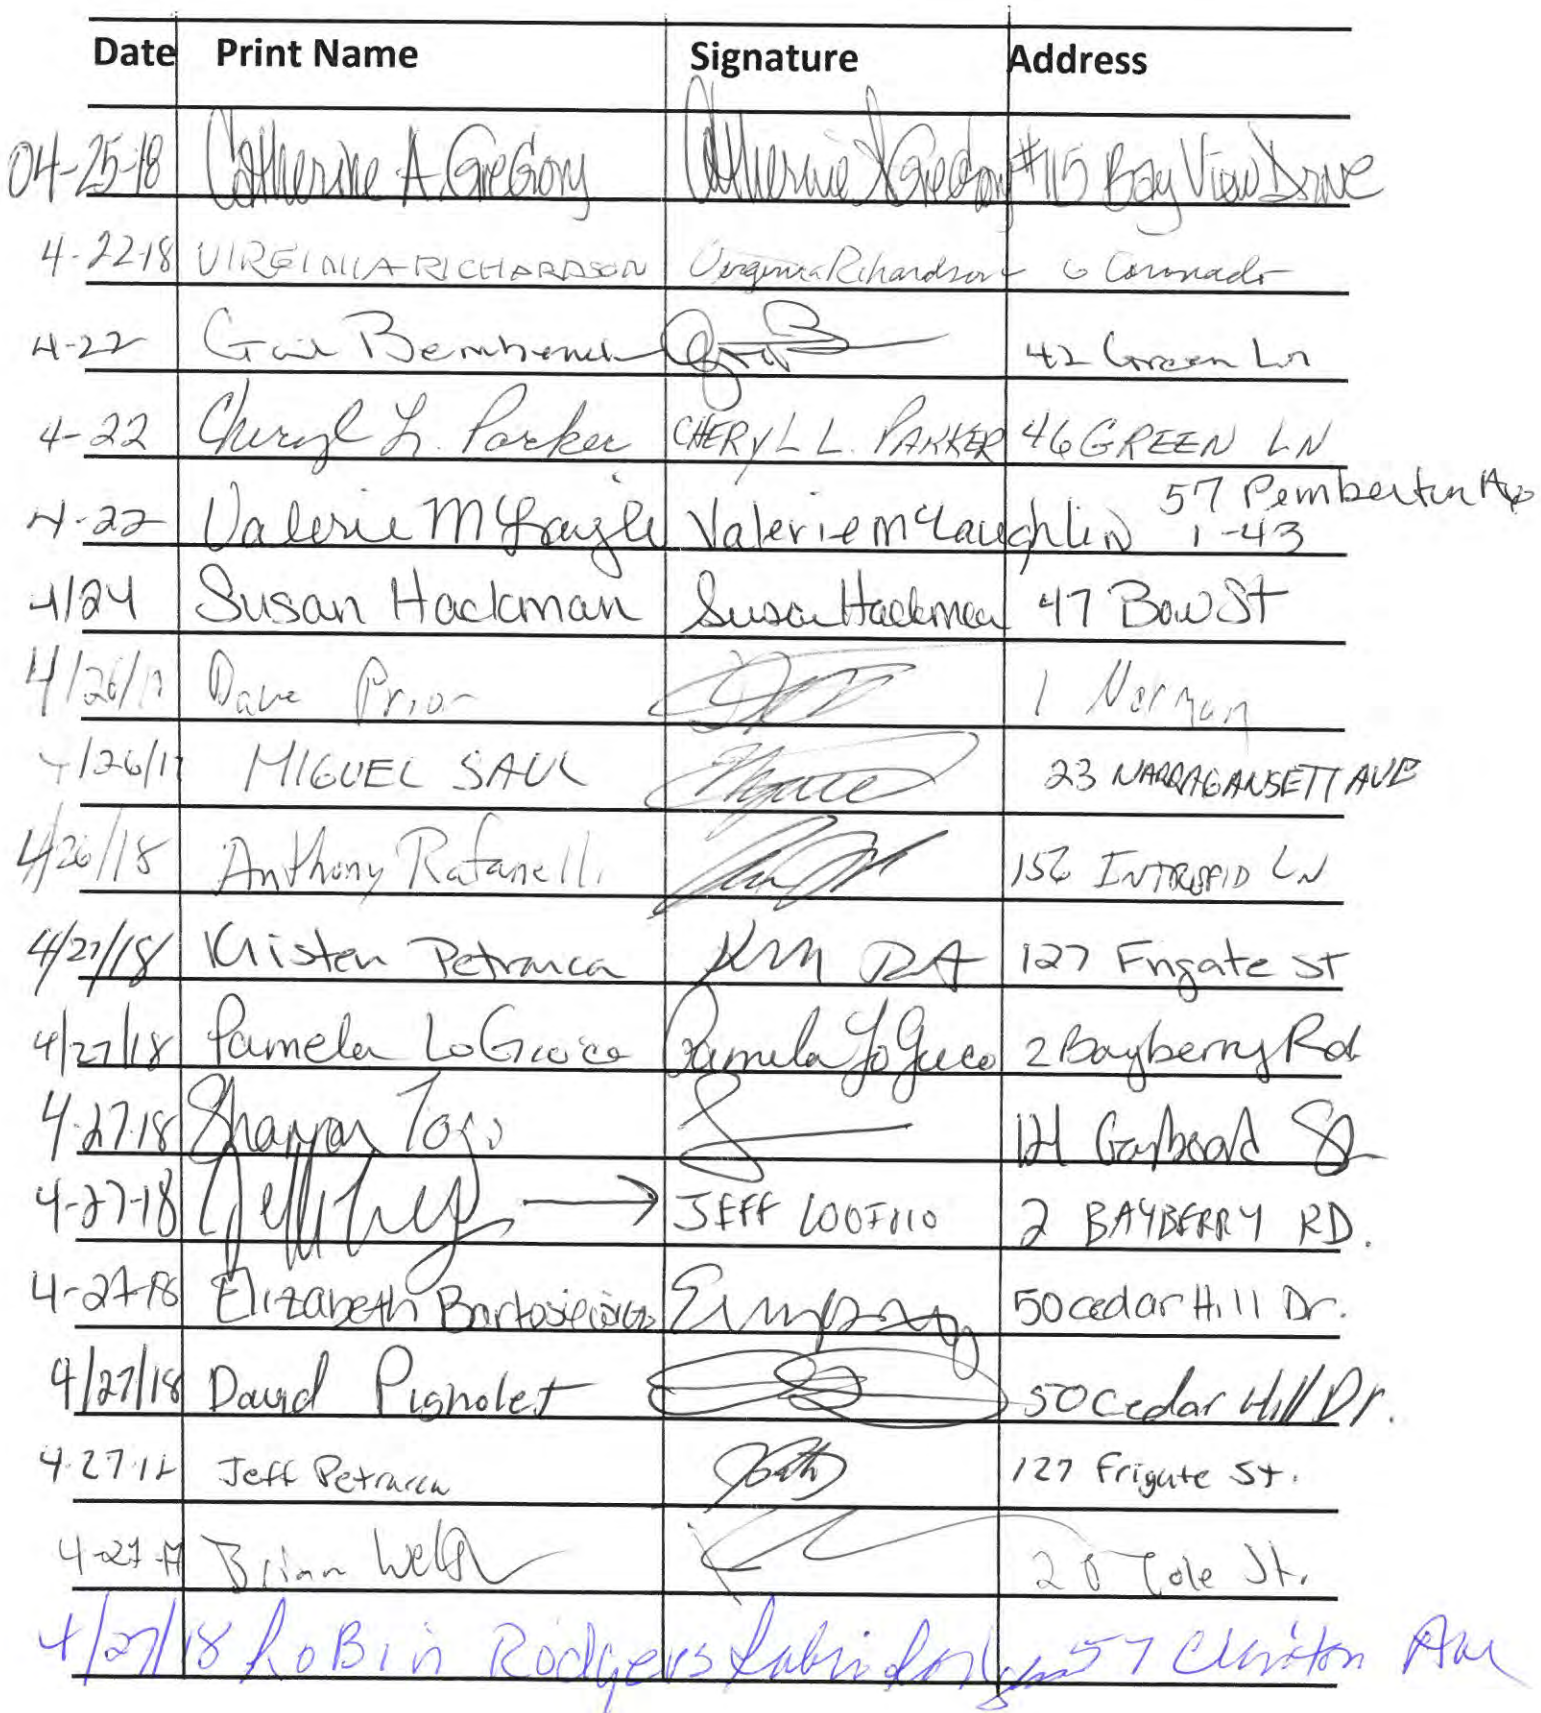 Date Print Name Signature Address
04-25-18 Catherine A. Gregory Catherine A Gregory #115 Bay View Drive
4-22-18 VIRGINIA RICHARDSON Virginia Richardson 6 Coronado
4-22 Gail 42 Green Ln
4-22 Cheryl L. Parker CHERYL L. PARKER 46 GREEN LN
57 Pemberton Ave
4-22 Valerie Valerie McLaughlin 1-43
4/24 Susan Hackman Susan Hackman 47 Bow St
4/26/ Dave Prior 1 Norman
4/26/1 MIGUEL SAUL 23 NARRAGANSETT AVE
4/26/18 Anthony Rafanelli 156 INTREPID LN
4/27/18 Kristen Petrarca 127 Frigate St
4/27/18 Pamela LoGiuico Pamela 2 Bayberry Rd
4-27-18 Shannon 121
4-27-18 → JEFF 2 BAYBERRY RD.
4-27-18 Elizabeth 50 Cedar Hill Dr.
4/27/18 David Pignolet 50 Cedar Hill Dr.
4-27-1 Jeff Petrarca 127 Frigate St.
4-27- Brian Welsh 20 Cole St.
4/27/18 RoBin Rodgers Robin Rodgers 57 Clinton Ave